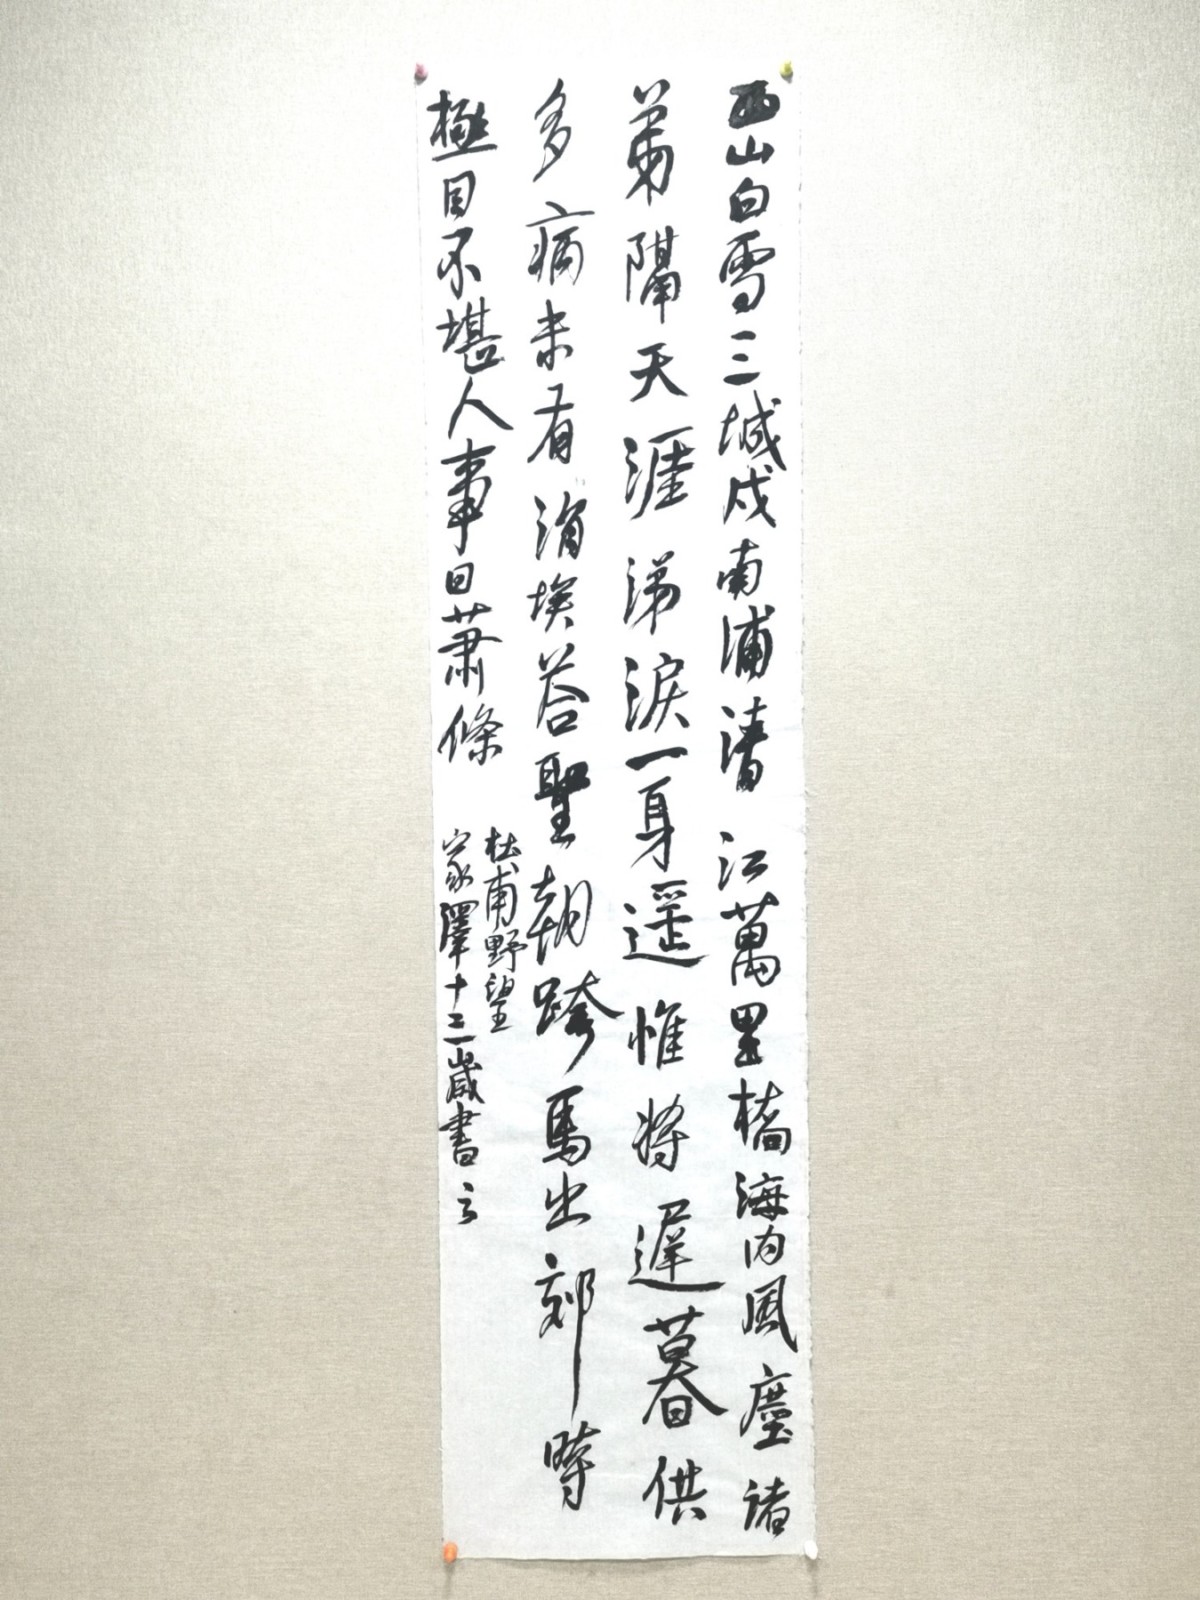 西山白雪三城戍南浦清江萬里橋海内風塵諸
弟隔天涯涕淚一身遥惟將遲暮供
多病未有涓埃荅聖朝跨馬出郊時
極目不堪人事日蕭條
杜甫野望
家澤十三歲書之